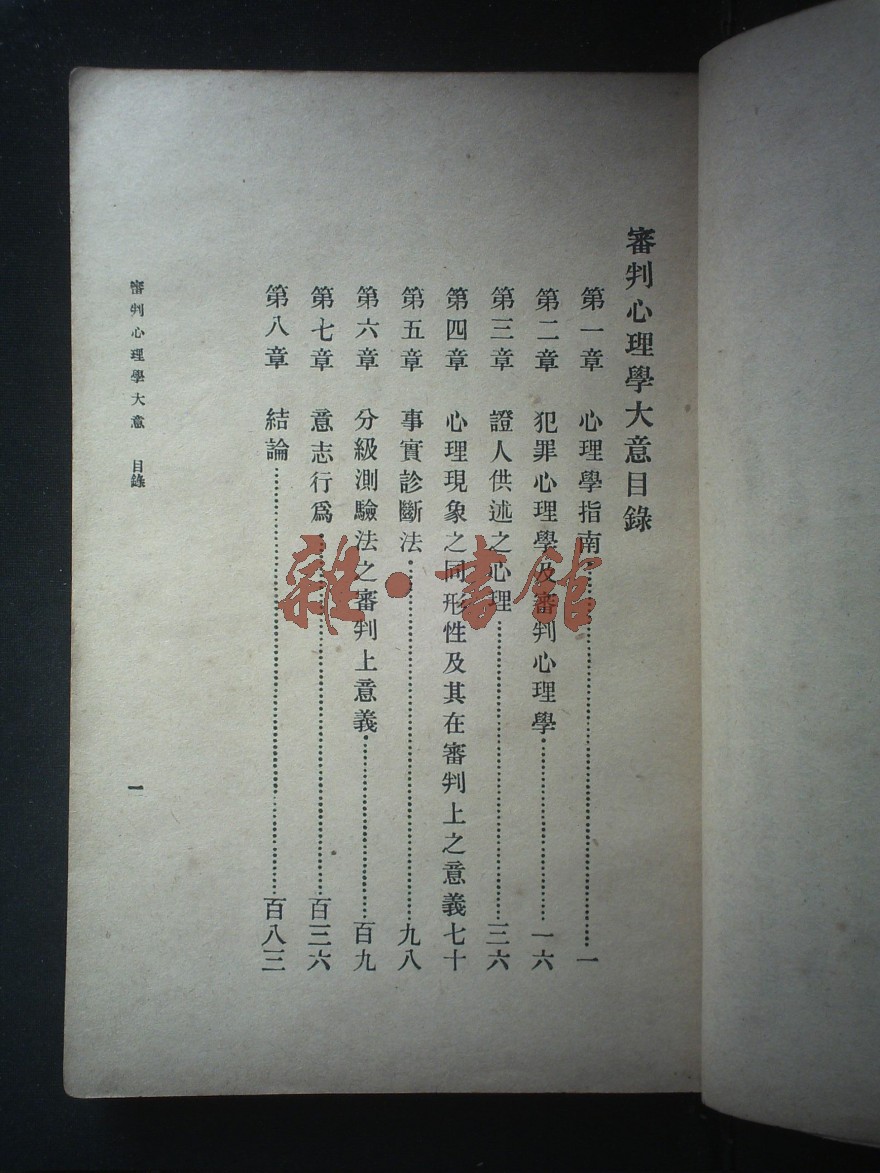 審判心理學大意目錄
第一章　心理學指南……一
第二章　犯罪心理學及審判心理學……一六
第三章　證人供述之心理……三六
第四章　心理現象之同形性及其在審判上之意義七十
第五章　事實診斷法……九八
第六章　分級測驗法之審判上意義……百九
第七章　意志行爲……百三六
第八章　結論……百八三
審判心理學大意　目錄
一
雜·書館